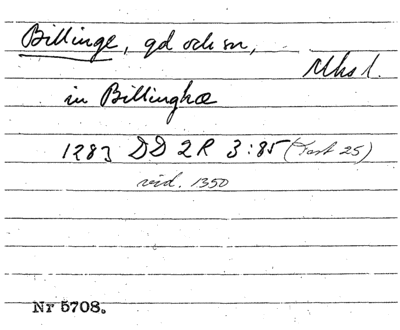 Billinge, gd och sn,
Mhs l.
in Billinghæ
1283 DD 2R 3:85 (Test 25)
vid. 1350
Nr 5708.